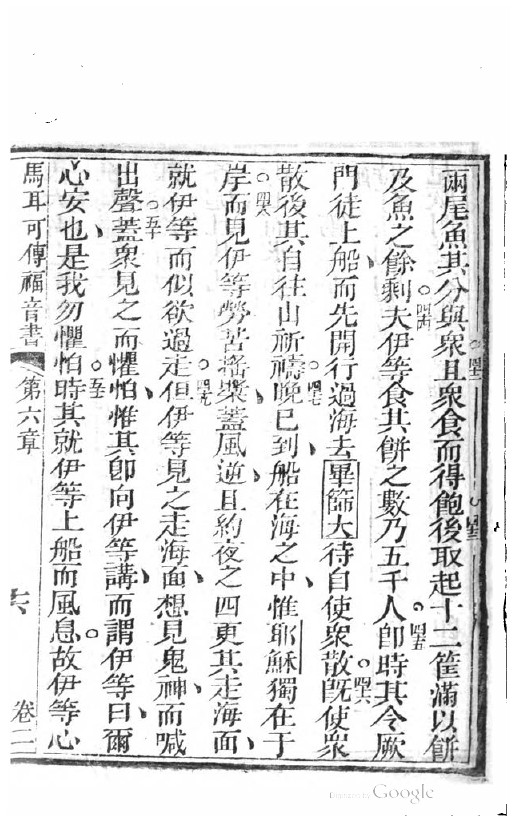 兩尾魚其分與衆且衆食而得飽後取起十二筐滿以餅
及魚之餘剩夫伊等食其餅之數乃五千人卽時其令厥
門徒上船而先開行過海去畢篩大待自使衆散旣使衆
散後其自往山祈禱晚已到船在海之中惟耶穌獨在于
岸而見伊等勞苦搖槳蓋風逆且約夜之四更其走海面
就伊等而似欲過走但伊等見之走海面想見鬼神而喊
出聲蓋衆見之而懼怕惟其卽向伊等講而謂伊等曰爾
心安也是我勿懼怕時其就伊等上船而風息故伊等心
馬耳可傳福音書 第六章 卷二
Digitized by Google